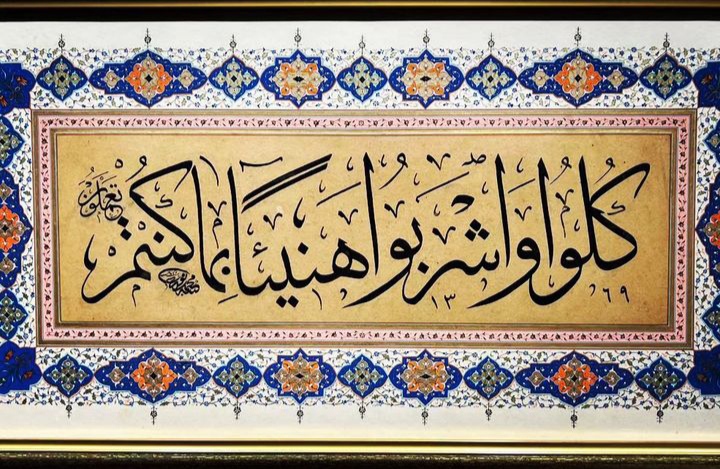 كُلُوا وَاشْرَبُوا هَنِيئًا بِمَا كُنْتُمْ تَعْمَلُونَ
١٣٦٩